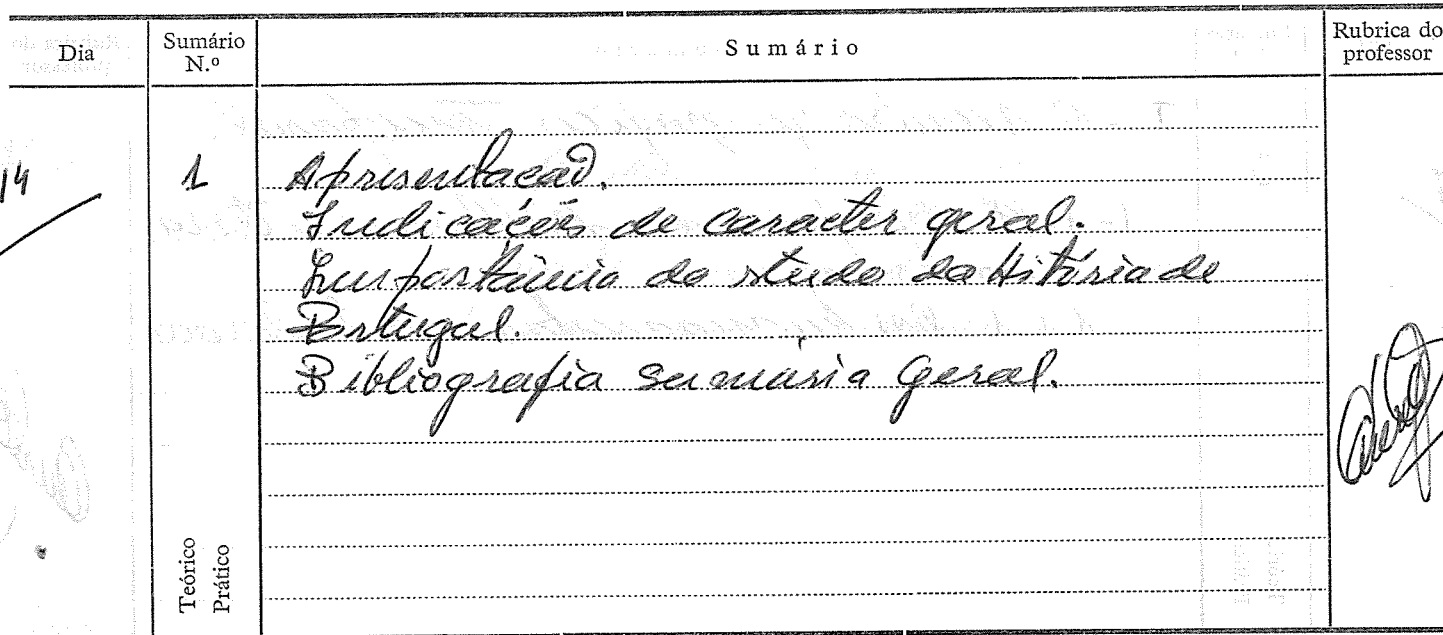 Dia Sumário N.º Sumário Rubrica do professor
14 1 Apresentação.
Indicações de caracter geral.
Importância do estudo da História de
Portugal.
Bibliografia sumária Geral.
Teórico
Prático